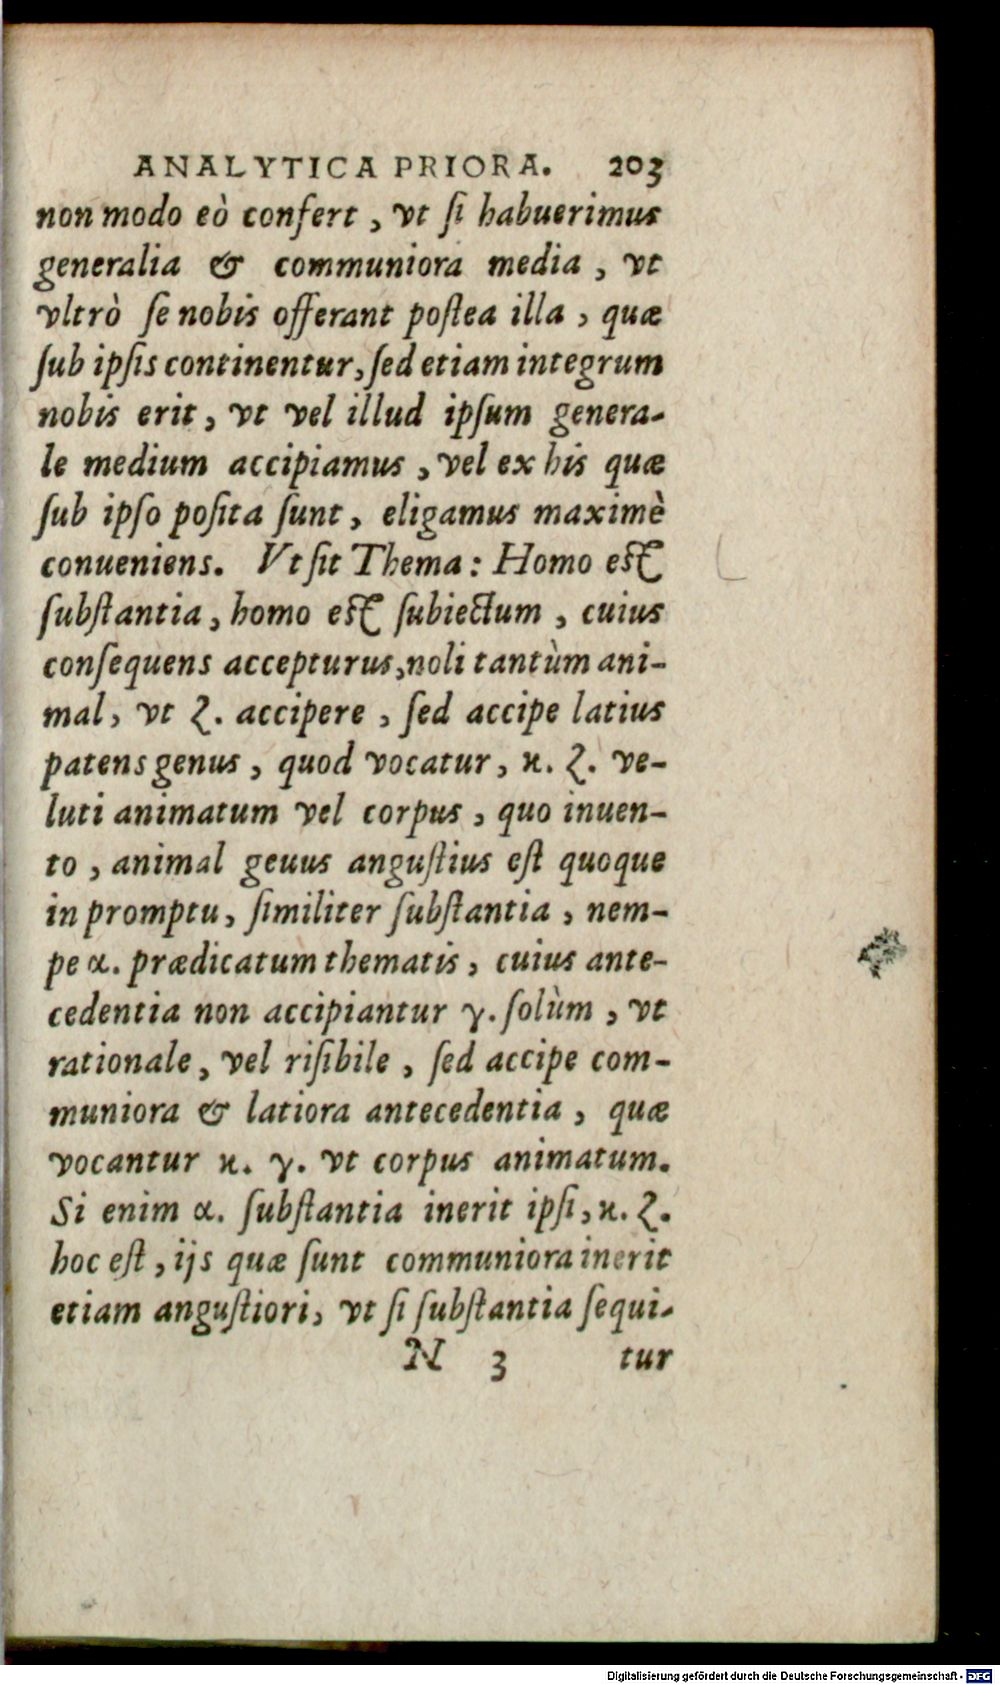 ANALYTICA PRIORA. 203
non modo eò confert, vt ſi habuerimus
generalia & communiora media, vt
vltrò ſe nobis offerant poſtea illa, quæ
ſub ipſis continentur, ſed etiam integrum
nobis erit, vt vel illud ipſum genera-
le medium accipiamus, vel ex his quæ
ſub ipſo poſita ſunt, eligamus maximè
conueniens. Vt ſit Thema: Homo eſt
ſubſtantia, homo eſt ſubiectum, cuius
conſequens accepturus, noli tantùm ani-
mal, vt ζ. accipere, ſed accipe latius
patens genus, quod vocatur, κ. ζ. ve-
luti animatum vel corpus, quo inuen-
to, animal geuus anguſtius eſt quoque
in promptu, ſimiliter ſubſtantia, nem-
pe α. prædicatum thematis, cuius ante-
cedentia non accipiantur γ. ſolùm, vt
rationale, vel riſibile, ſed accipe com-
muniora & latiora antecedentia, quæ
vocantur κ. γ. vt corpus animatum.
Si enim α. ſubſtantia inerit ipſi, κ. ζ.
hoc eſt, ijs quæ ſunt communiora inerit
etiam anguſtiori, vt ſi ſubſtantia ſequi-
N 3 tur
Digitalisierung gefördert durch die Deutsche Forschungsgemeinschaft - DFG